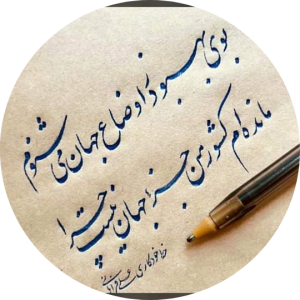 بوی بهبود ز اوضاع جهان می شنوم
مانده ام کشور من جزء جهان نیست چرا